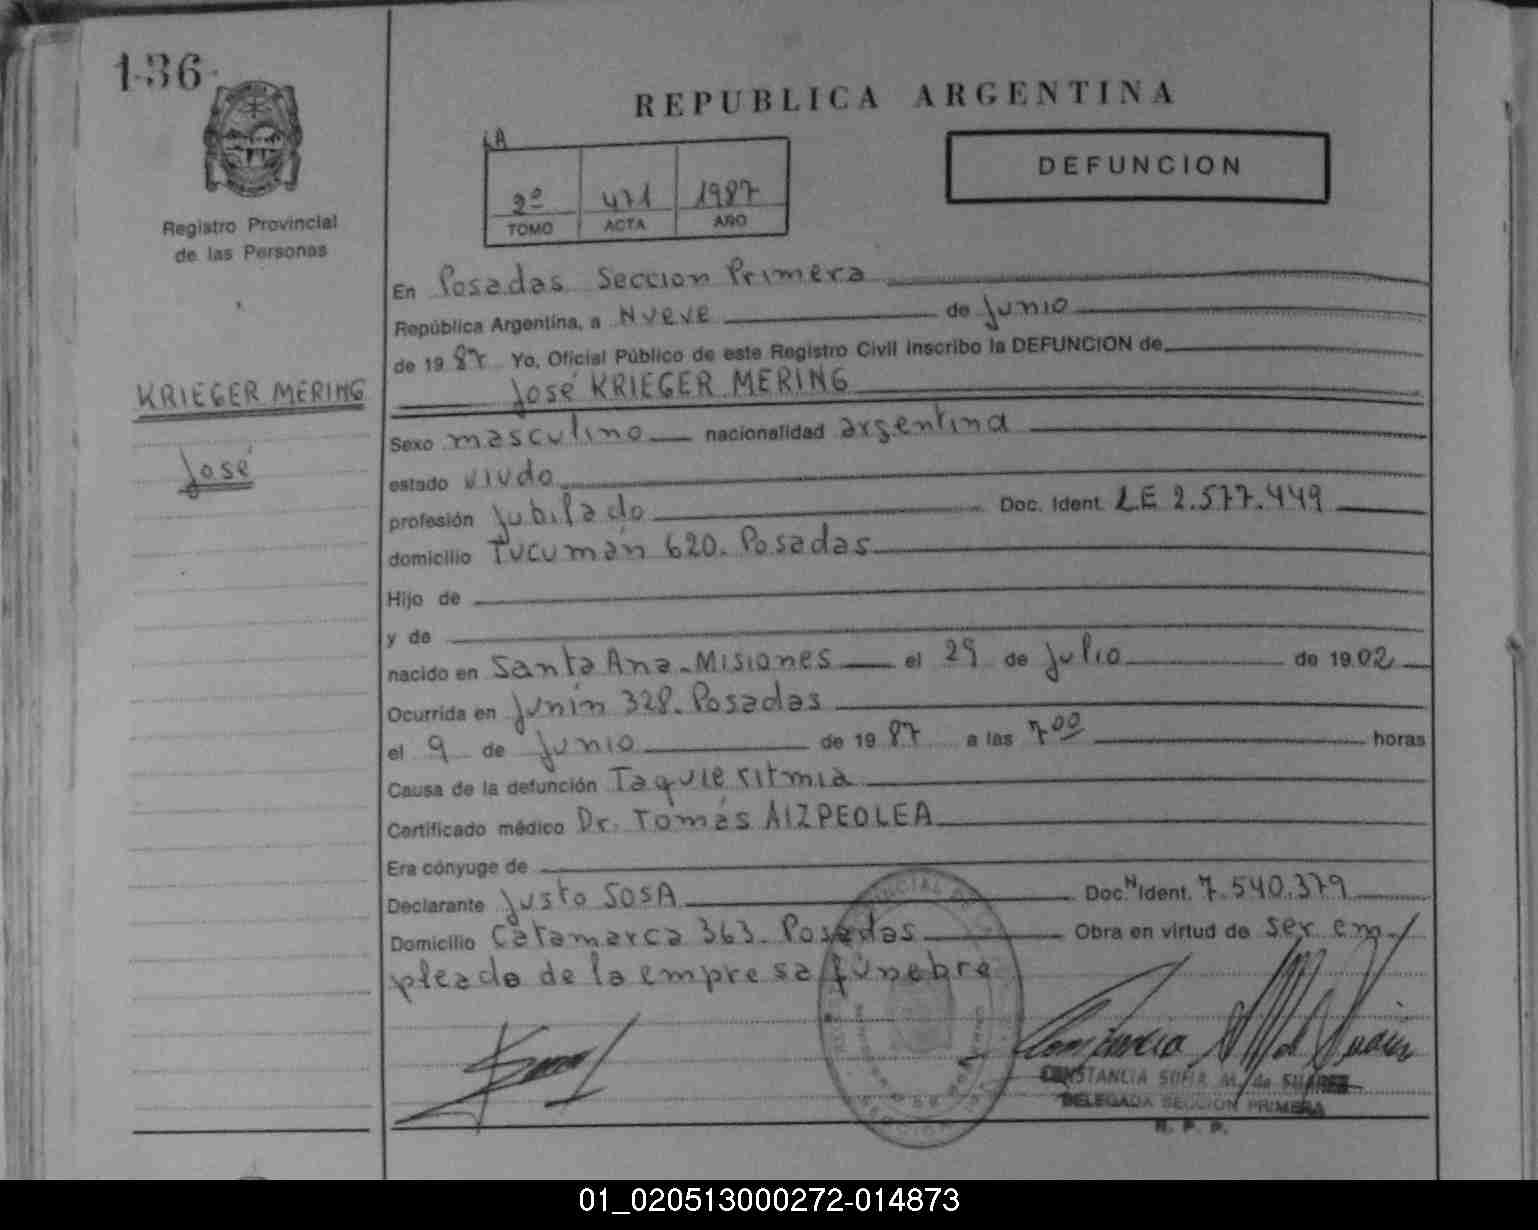 136
REPUBLICA ARGENTINA
Registro Provincial
de las Personas
1A
2º 471 1987
TOMO ACTA AÑO
DEFUNCION
En Posadas Seccion Primera
República Argentina, a Nueve de junio
de 19 87 Yo, Oficial Público de este Registro Civil inscribo la DEFUNCION de
KRIEGER MERING
José
José KRIEGER MERING
Sexo masculino nacionalidad argentina
estado viudo
profesión jubilado Doc. Ident. LE 2.577.449
domicilio Tucumán 620. Posadas
Hijo de
y de
nacido en Santa Ana-Misiones el 29 de julio de 1902
Ocurrida en junín 328. Posadas
el 9 de junio de 19 87 a las 7 00 horas
Causa de la defunción Taquieritmia
Certificado médico Dr. Tomás AIZPEOLEA
Era cónyuge de
Declarante justo SOSA Doc. N Ident. 7.540.379
Domicilio Catamarca 363. Posadas Obra en virtud de ser em-
pleado de la empresa fúnebre
CONSTANCIA SOFIA M. de SUAREZ
DELEGADA SECCION PRIMERA
R. P. P.
01_020513000272-014873